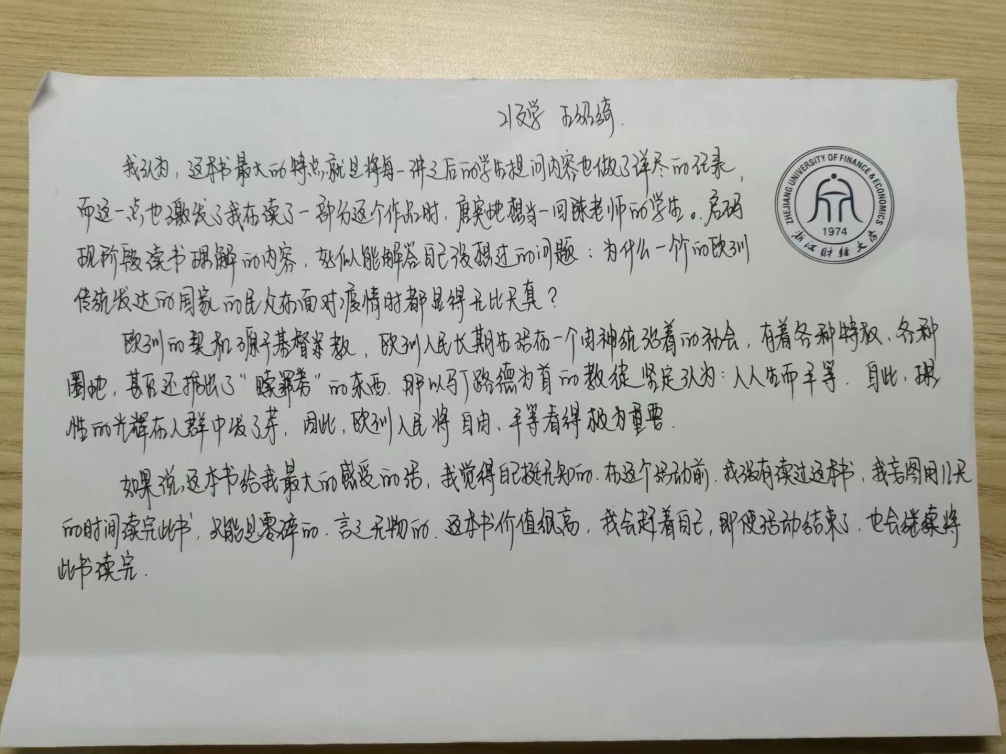 我认为，这本书最大的特点，就是将每一讲之后的学生提问内容也做了详尽的记录，
而这一点也激发了我在读了一部分这个作品时，真实地想当一回陈老师的学生。启码
现阶段读书理解的内容，能解答自己没想过的问题：为什么一个个的欧洲
传统发达的国家的民众在面对疫情时都显得无比天真？
欧洲的契机源于基督教，欧洲人民长期生活在一个由神统治着的社会，有着各种特权、各种
圈地，甚至还推出了“赎罪券”的东西。那以马丁路德为首的教徒坚定认为：人人生而平等。自此，理
性的光辉在人群中发了芽，因此，欧洲人民将自由、平等看得极为重要。
如果说，这本书给我最大的感受的话，我觉得自己挺无知的。在这个活动前，我没有读过这本书，我若图用12天
的时间读完此书，只能是零碎的、言之无物的。这本书价值很高，我会赶着自己，即便活动结束了，也会继续将
此书读完。
ZHEJIANG UNIVERSITY OF FINANCE & ECONOMICS
1974
浙江财经大学